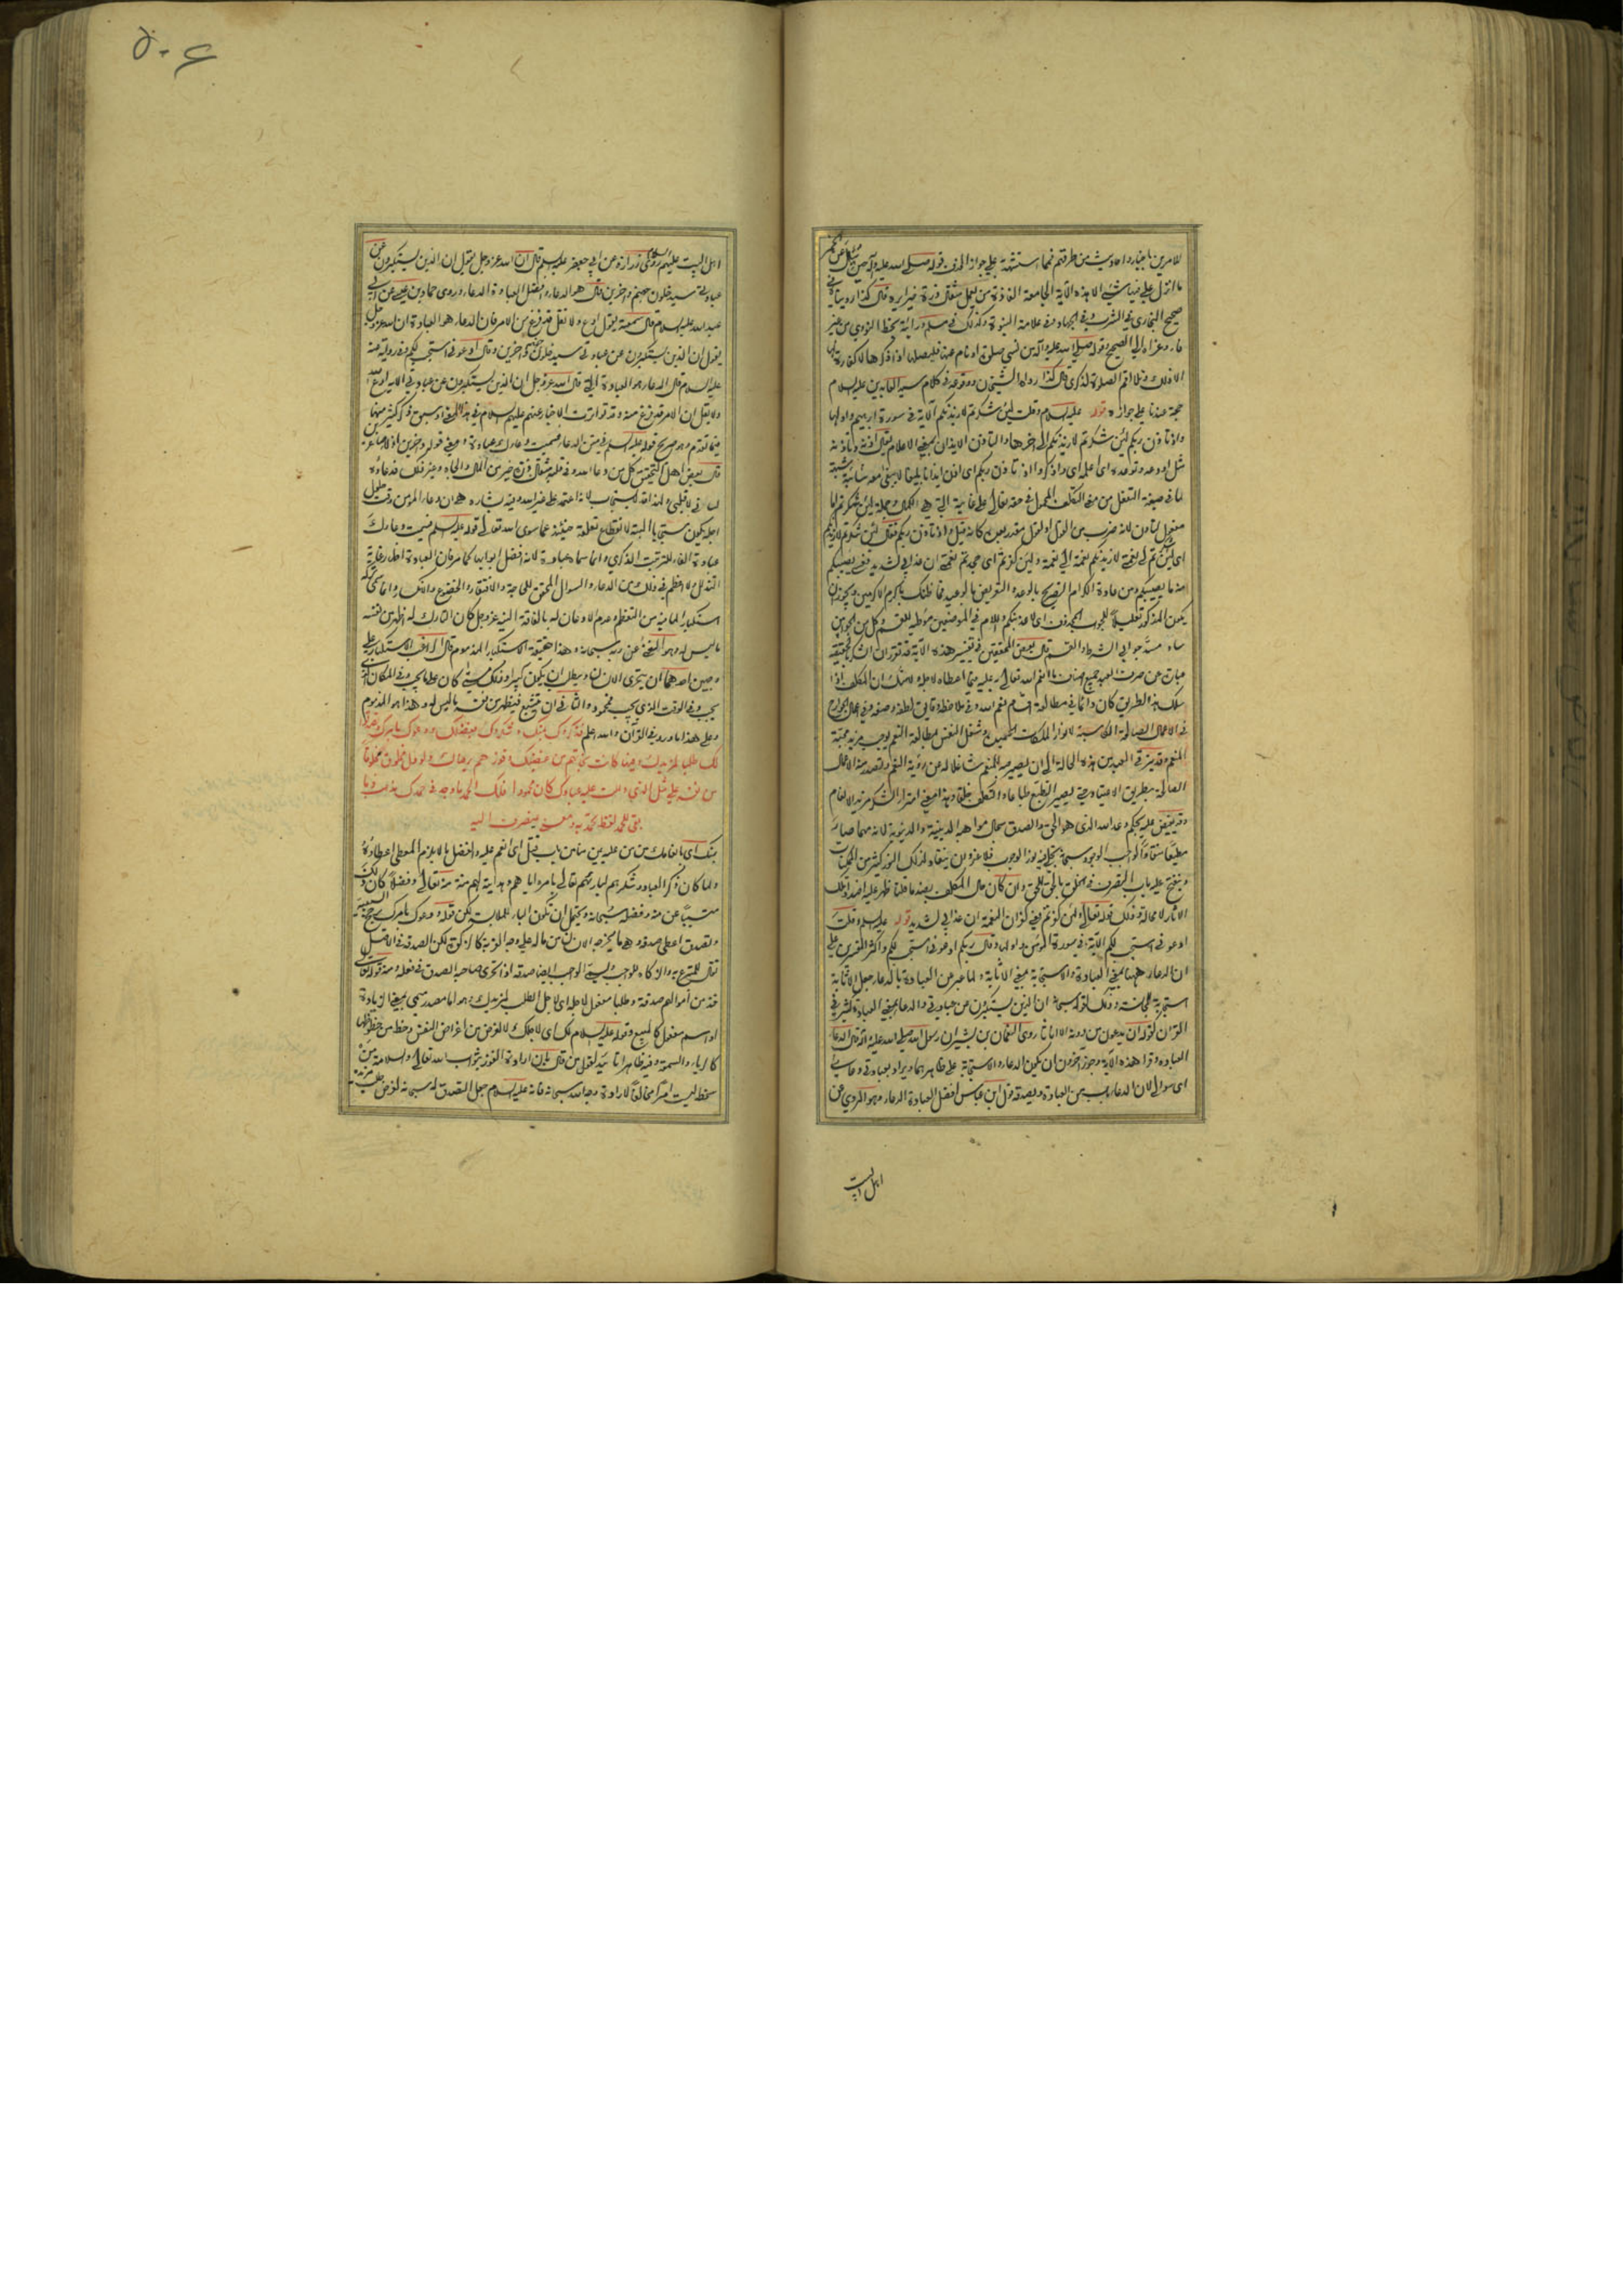 ٥٠٤
ما انزل علي فيها شئ الا هذه الآية الجامعة الفاذة من يعمل مثقال ذرة خيرا يره قال كذا رويناه في
صحيح البخاري في الشرب وفي الجهاد وفي علامة النبوة وكذلك في مسلم ورأيته بخط النووي من غير
فاء وعزاه الى الصحيح وقوله صلى الله عليه وآله من نسي صلوة او نام عنها فليصلها اذا ذكرها لا كفارة لها
الا ذلك وتلا اقم الصلوة لذكري قال كذا رواه الشيخان ووقوعه في كلام سيد العابدين عليه السلام
حجة عندنا على جوازه قوله عليه السلام وقلت لئن شكرتم لازيدنكم الآية في سورة ابراهيم واولها
واذ تأذن ربكم لئن شكرتم لازيدنكم الى اخرها والتأذن الايذان بمعنى الاعلام يقال
لما في صيغة التفعل من معنى التكلف المحمول في حقه تعالى على غايته التي هي الكمال وجملة لئن شكرتم اما
مفعول لتأذن لانه ضرب من القول او لقول مقدر بعده كانه قيل واذ تأذن ربكم فقال لئن شكرتم لازيدنكم
نعمة الى نعمة ولئن كفرتم اى جحدتم نعمتي ان عذابي لشديد فعسى يصيبكم
منه ما يصيبكم ومن عادة الكرام التصريح بالوعد والتعريض بالوعيد فما ظنك باكرم الاكرمين ويجوز ان
يكون المذكور تعليلا للجواب المحذوف اى لاعذبنكم واللام في الموضعين موطئة للقسم وكل من الجوابين
ساد مسد جوابي الشرط والقسم قال بعض المحققين في تفسير هذه الآية قد تقرر ان الشكر في الحقيقة
عبارة عن صرف العبد جميع ما انعم الله تعالى به عليه فيما اعطاه لاجله ولا شك ان المكلف اذا
سلك هذا الطريق كان دائما في مطالعة اقسام نعم الله وفي ملاحظة دقايق لطفه وصنعه وفي اعمال الجوارح
في الاعمال الصالحة الكاسبة لانوار الملكات الحميدة وشغل النفس بمطالعة النعم يوجب مزيد محبة
المنعم وقد يترقى العبد من هذه الحالة الى ان يصير حبه للمنعم شاغلا له عن رؤية النعم وتصدر منه الاعمال
الصالحة بطريق الاعتياد حتى يصير التطبع طباعا والتكلف خلقا وهذا معنى امتراء الشكر مزيد الانعام
وقد يفيض عليه بحكم وعد الله الذي هو الحق والصدق سجال مواهبه الدينية والدنيوية لانه مهما صار
مطيعا منقادا لواجب الوجود سبحانه تجلى فيه نور الوجوب فلا غرو ان ينقاد لذلك النور كثير من الممكنات
وينفتح عليه باب التصرف في الخلق بالحق للحق وان كان حال المكلف بضد ما قلنا ظهر عليه اضداد تلك
الآثار لا محالة وذلك قوله تعالى ولئن كفرتم يعني كفران النعمة ان عذابي لشديد قوله عليه السلام وقلت
ادعوني استجب لكم الآية في سورة المؤمن واولها وقال ربكم ادعوني استجب لكم واكثر المفسرين على
ان الدعاء ههنا بمعنى العبادة والاستجابة بمعنى الاثابة ولما عبر عن العبادة بالدعاء جعل الاثابة
استجابة للمجانسة وذلك لقوله سبحانه ان الذين يستكبرون عن عبادتي والدعاء بمعنى العبادة كثير في
القرآن كقوله ان يدعون من دونه الا اناثا روى النعمان بن بشير ان رسول الله صلى الله عليه وآله قال الدعاء
العبادة وقرأ هذه الآية وجوز اخرون ان يكون الدعاء والاستجابة على ظاهرهما ويراد بعبادتي دعائي
اى سؤالي لان الدعاء باب من العبادة ويصدقه قول ابن عباس افضل العبادة الدعاء وهو المروي عن
اهل البيت
اهل البيت عليهم السلام روى زرارة عن ابي جعفر عليه السلام قال ان الله عز وجل يقول ان الذين يستكبرون عن
عبادتي سيدخلون جهنم داخرين قال هو الدعاء وافضل العبادة الدعاء وروى حماد بن عيسى عن ابي
عبد الله عليه السلام قال سمعته يقول ادع ولا تقل قد فرغ من الامر فان الدعاء هو العبادة ان الله عز وجل
يقول ان الذين يستكبرون عن عبادتي سيدخلون جهنم داخرين وقال ادعوني استجب لكم وفي رواية عنه
عليه السلام قال الدعاء هو العبادة التي قال الله عز وجل ان الذين يستكبرون عن عبادتي الآية ادع الله
ولا تقل ان الامر قد فرغ منه وقد تواترت الاخبار عنهم عليهم السلام في هذا المعنى وسبق ذكر كثير منها
فيما تقدم وهو صريح قوله عليه السلام في متن الدعاء فسميت دعاءك عبادة
قال بعض اهل التحقيق كل من دعا الله وفي قلبه مثقال ذرة خير من المال والجاه وغير ذلك فدعاؤه
لساني لا قلبي ولهذا قد لا يستجاب لانه اعتمد على غير الله وفيه بشارة هي ان دعاء المؤمن وقت حلول
اجله يكون مستجابا البتة لانقطاع تعلقه حينئذ عما سوى الله تعالى قوله عليه السلام فسميت دعاءك
عبادة الفاء للترتيب الذكري وانما سماه عبادة لانه افضل ابوابها كما مر فان العبادة اظهار غاية
التذلل ولا اعظم في ذلك من الدعاء والسؤال المحقق للحاجة والافتقار والخضوع والانكسار وانما سمي تركه
استكبارا لما فيه من التعظم وعدم الاذعان له بالفاقة اليه عز وجل كان التارك له اظهر من نفسه
ما ليس له وهو الغنى عن ربه سبحانه وهذا حقيقة الاستكبار المذموم قال الراغب الاستكبار على
وجهين احدهما ان يتحرى الانسان ويطلب ان يكون كبيرا وذلك متى كان على ما يجب وفي المكان الذي
يجب وفي الوقت الذي يجب فمحمود والثاني ان يتشبع فيظهر من نفسه ما ليس له وهذا هو المذموم
وعلى هذا ما ورد في القرآن والله اعلم فذكروك بمنك وشكروك بفضلك ودعوك بامرك وتصدقوا
لك طلبا لمزيدك وفيها كانت نجاتهم من غضبك وفوزهم برضاك ولو دل مخلوق مخلوقا
من نفسه على مثل الذي دللت عليه عبادك كان محمودا فلك الحمد ما وجد في حمدك مذهب وما
بقي للحمد لفظ تحمد به ومعنى ينصرف اليه
بمنك اى بانعامك من من عليه من منا من باب قتل اى انعم عليه وافضل ما لا يلزم المعطي اعطاؤه
ولما كان ذكر العباد وشكرهم لبارئهم تعالى بامره اياهم وهدايته لهم منة منه تعالى وفضلا كان ذلك
مسببا عن منه وفضله سبحانه ويحتمل ان تكون الباء للملابسة لكن قوله ودعوك بامرك يرجح السببية
وتصدق اعطى صدقة وهي ما يخرجه الانسان من ماله على وجه القربة كالزكوة لكن الصدقة في الاصل
تقال للمتبرع به والزكاة للواجب وقد يسمى الواجب ايضا صدقة اذا تحرى صاحبه الصدق في فعله ومنه قوله تعالى
خذ من اموالهم صدقة وطلبا مفعول لاجله اى لاجل الطلب لمزيدك وهو اما مصدر ميمي بمعنى الزيادة
او اسم مفعول كالمبيع وقوله عليه السلام لك اى لاجلك لا لغرض من اغراض النفس وحظ من حظوظها
كالرياء والسمعة وفيه ظاهرا تأييد لقول من قال بان ارادة الفوز بثواب الله تعالى والسلامة من
سخطه ليست امرا مخالفا لارادة وجه الله سبحانه فانه عليه السلام جعل التصدق له سبحانه لغرض طلب مزيده